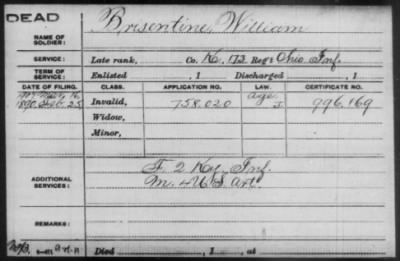 DEAD
NAME OF SOLDIER: Brisentine, William
SERVICE: Late rank, Co. K, 172 Reg't Ohio Inf.
TERM OF SERVICE: Enlisted , 1 Discharged , 1
DATE OF FILING. CLASS. APPLICATION NO. LAW. CERTIFICATE NO.
1890 25 Invalid, 758.020 J 996.169
Widow,
Minor,
ADDITIONAL SERVICES: F. 2 Ky. Inf.
M. 4 U S Art.
REMARKS:
Died , 1 , at